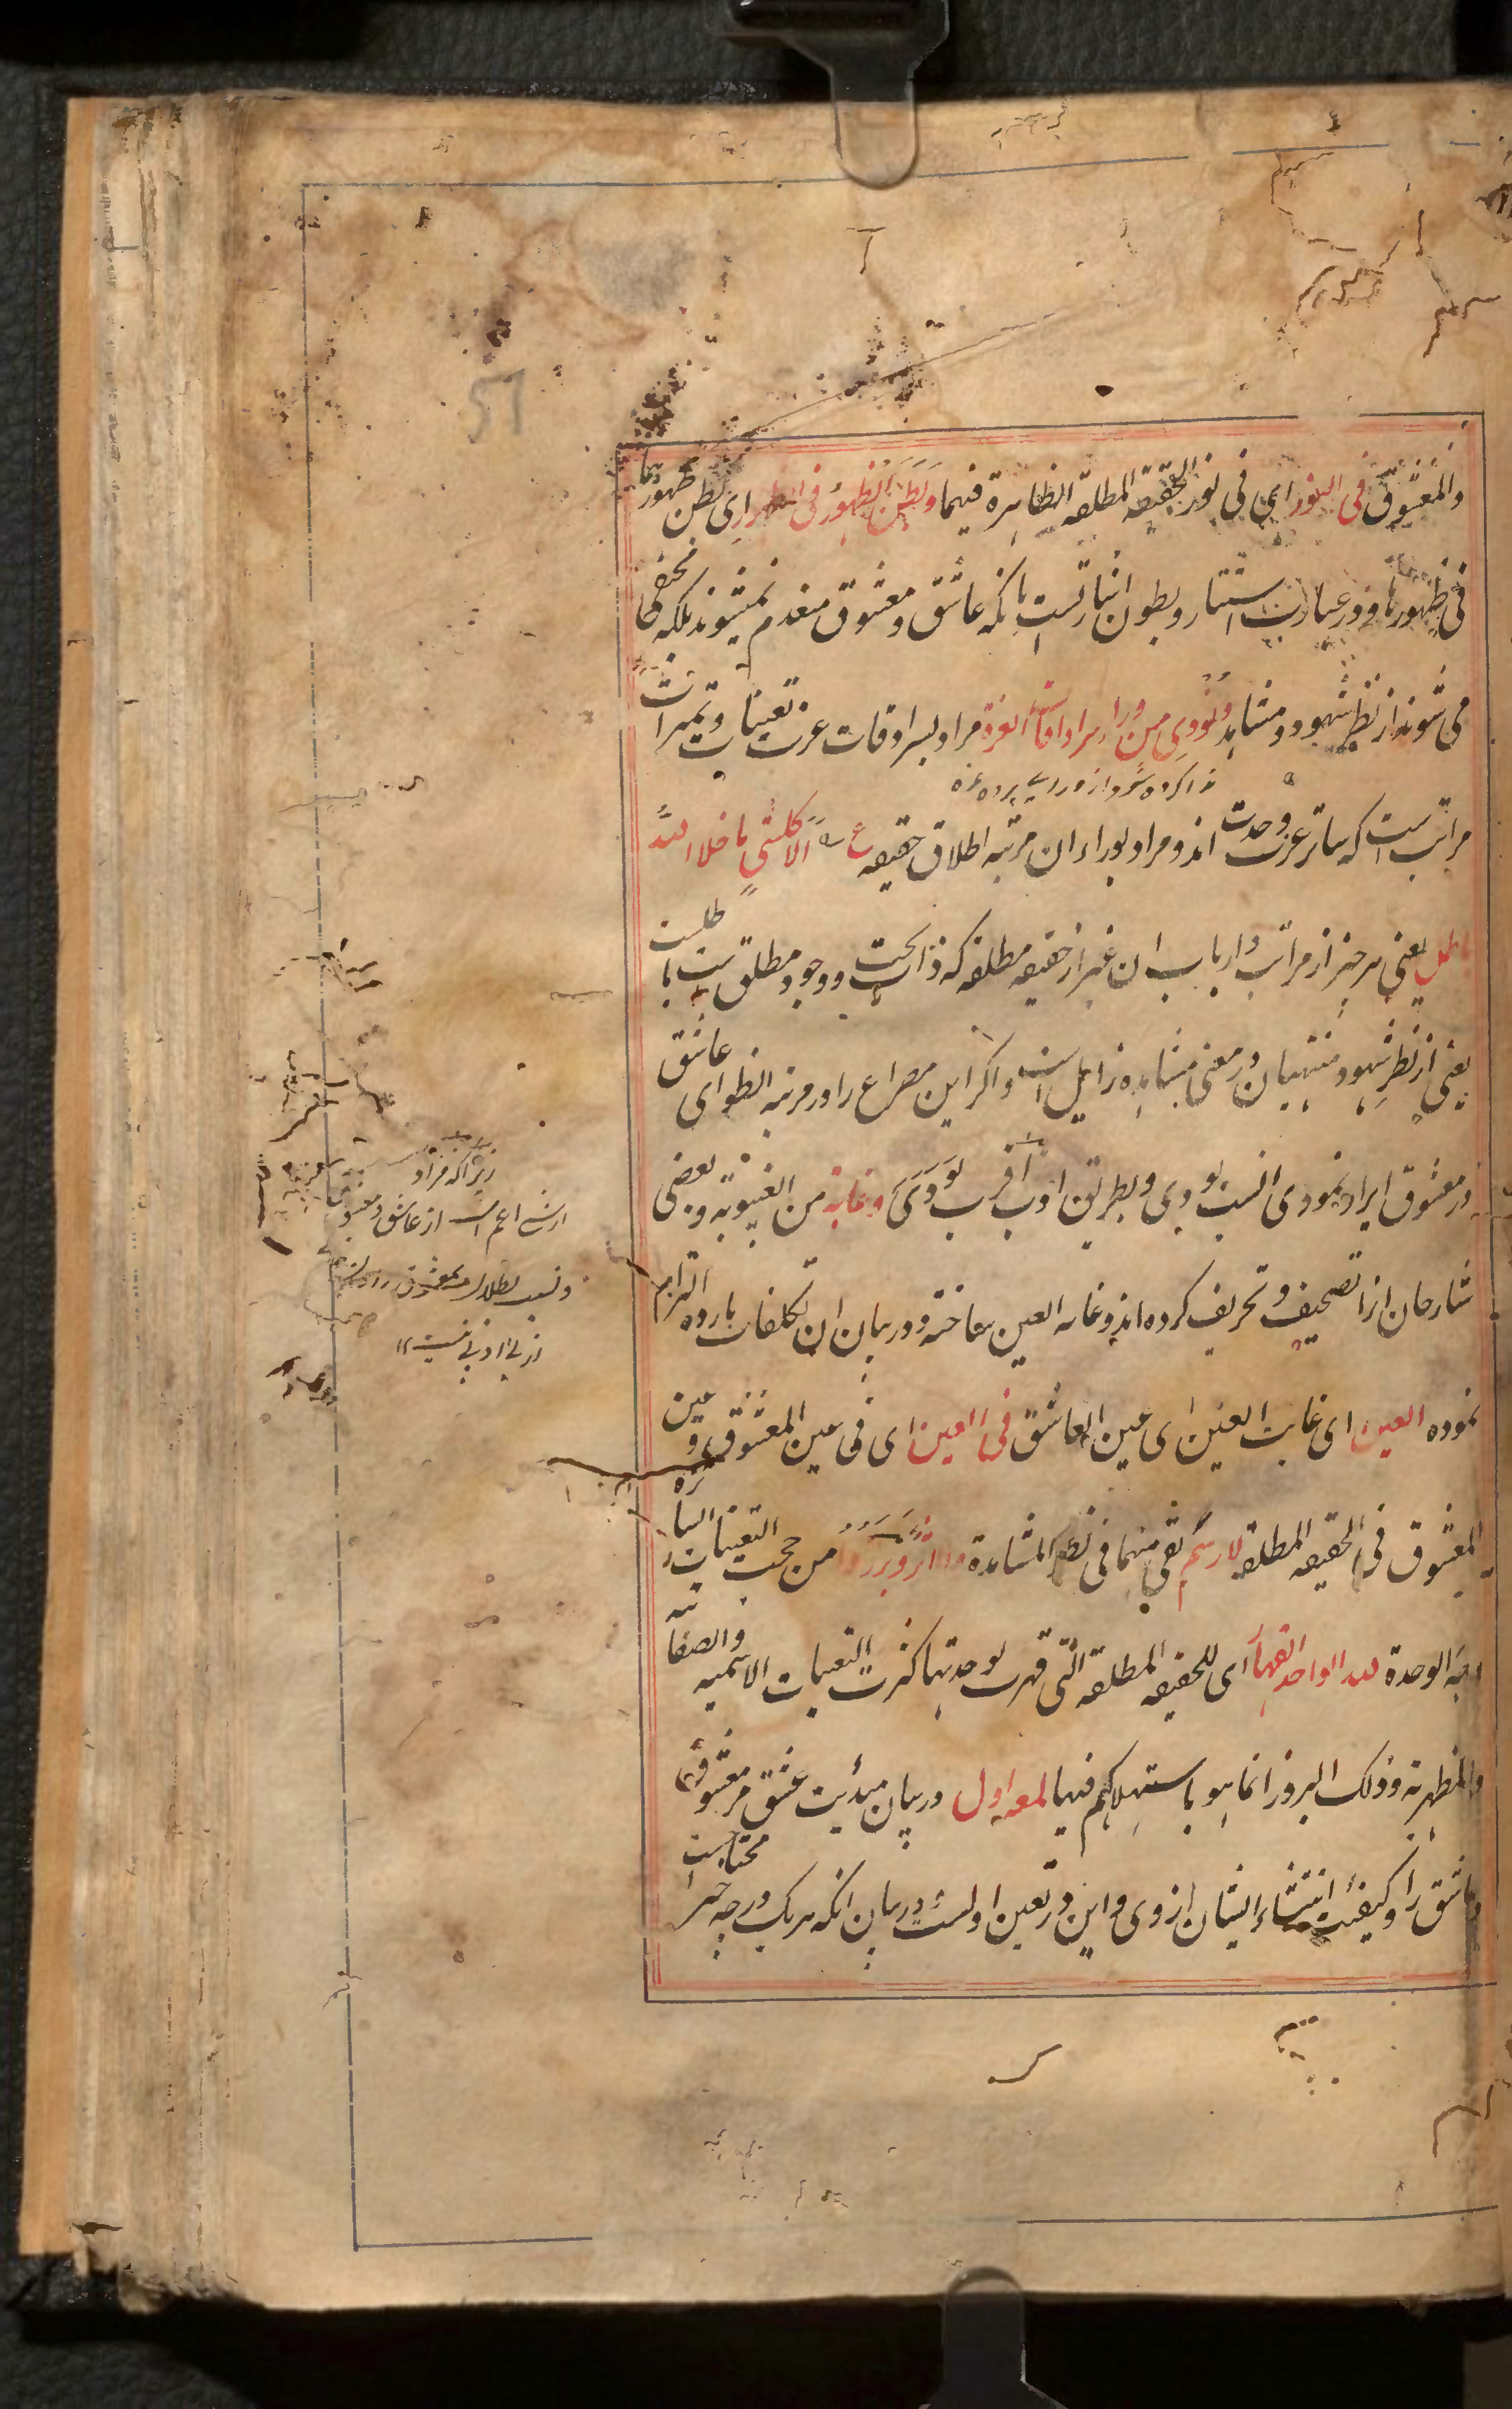 والمعشوق فی النور ای فی نور الحقیقه المطلقه الظاهرة فیهما وبطن الظهور فی الظهور ای بطن ظهورهما
فی ظهورها و در عبارت استتار و بطون اشارتست بانکه عاشق و معشوق منعدم نمیشوند بلکه مخفی
می شوند از نظر شهود و مشاهد ونودی من وراء سرادقات العزة مراد بسرادقات عزت تعینات و تمیزات
ندا کرده شود از ورای پرده عزه
مراتبست که ساتر عزت وحدت اند و مراد بوراء ان مرتبه اطلاق حقیقه ع الا کل شی ما خلا الله
باطل یعنی هر چیز از مراتب و ارباب ان غیر از حقیقه مطلقه که ذات بحت و وجود مطلق است باطلست
یعنی از نظر شهود منتهیان در معنی مشاهده زایل است و اگر این مصراع را در مرتبه انطوای عاشق
در معشوق ایراد نمودی انسب بودی و بطریق ادب اقرب بودی وغابة من الغیبوبة و بعضی
شارحان انرا تصحیف و تحریف کرده اند و غابه العین ساخته و در بیان ان تکلفات بارده التزام
نموده العین ای غابت العین ای عین العاشق فی العین ای فی عین المعشوق و عین
المعشوق فی الحقیقه المطلقه لا رسم بقی منهما فی نظر المشاهدة ولا اثر وبرزوا من حجب التعینات الساتره
وجه الوحدة لله الواحد القهار ای للحقیقه المطلقه التی قهرت لوحدتها کثرت التعینات الاسمیه والصفاتیه
والمظهریه وذلک البروز انما هو باستهلاکهم فیها لمعه اول در بیان مبدئیت عشق مر معشوق
و عاشق را و کیفیت انتشاء ایشان از وی و این در تعین اولست و در بیان انکه هر یک در چه چیز محتاجست
زیرا که مراد
از شی اعم است از عاشق و معشوق
و نسبت بطلان بمعشوق دادن
از بی ادبی نیست